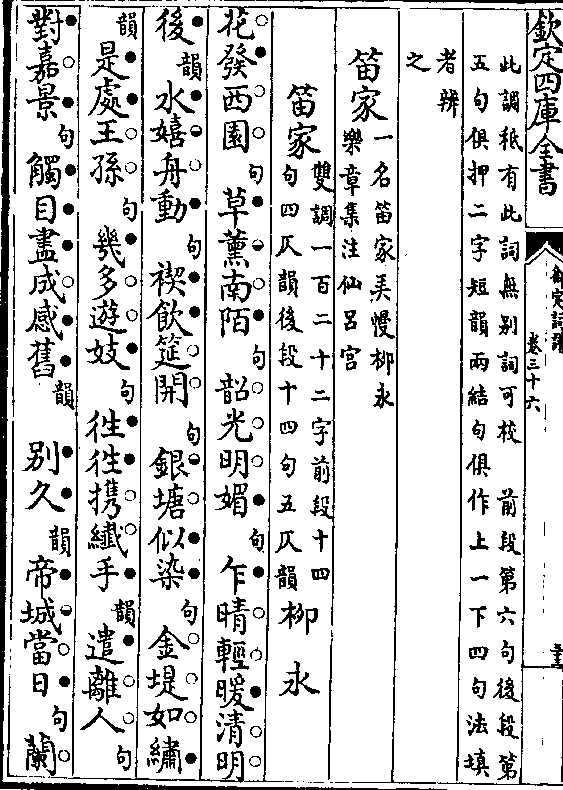 欽定四庫全書
御定詞譜
卷三十六
此調秪有此詞無别詞可校　前段第六句後段第
五句俱押二字短韻兩結句俱作上一下四句法填
者辨
之
笛家一名笛家弄慢柳永
樂章集注仙呂宮
笛家雙調一百二十二字前段十四
句四仄韻後段十四句五仄韻柳永
花發西園句草薰南陌句韶光明媚句乍晴輕暖清明
後韻水嬉舟動句禊飲筵開句銀塘似染句金堤如繡
韻是處王孫句幾多遊妓句徃徃携纖手韻遣離人句
對嘉景句觸目盡成感舊韻别久韻帝城當日句蘭